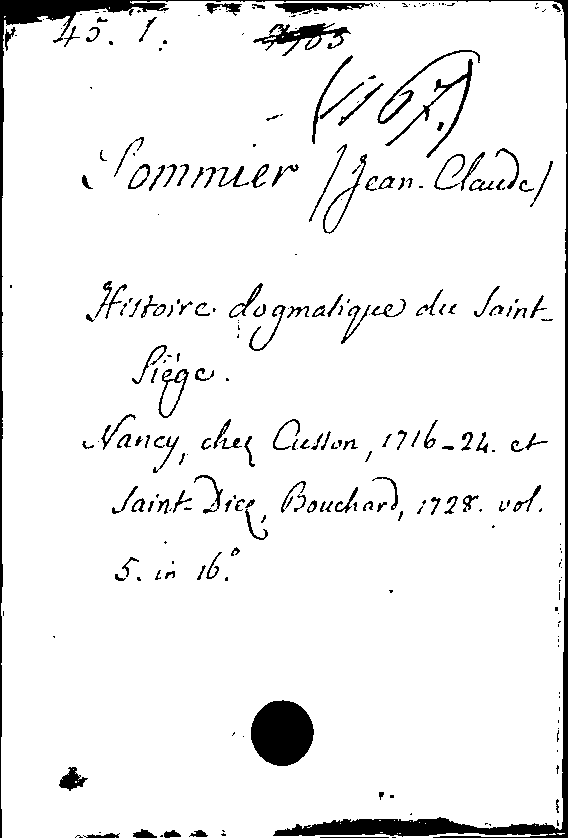 45. 1.
(1167.)
Sommier (Jean-Claude)
Histoire dogmatique du Saint-
Siége.
Nancy, chez Cusson, 1716-24. et
Saint-Diez, Bouchard, 1728. vol.
5. in 16.°